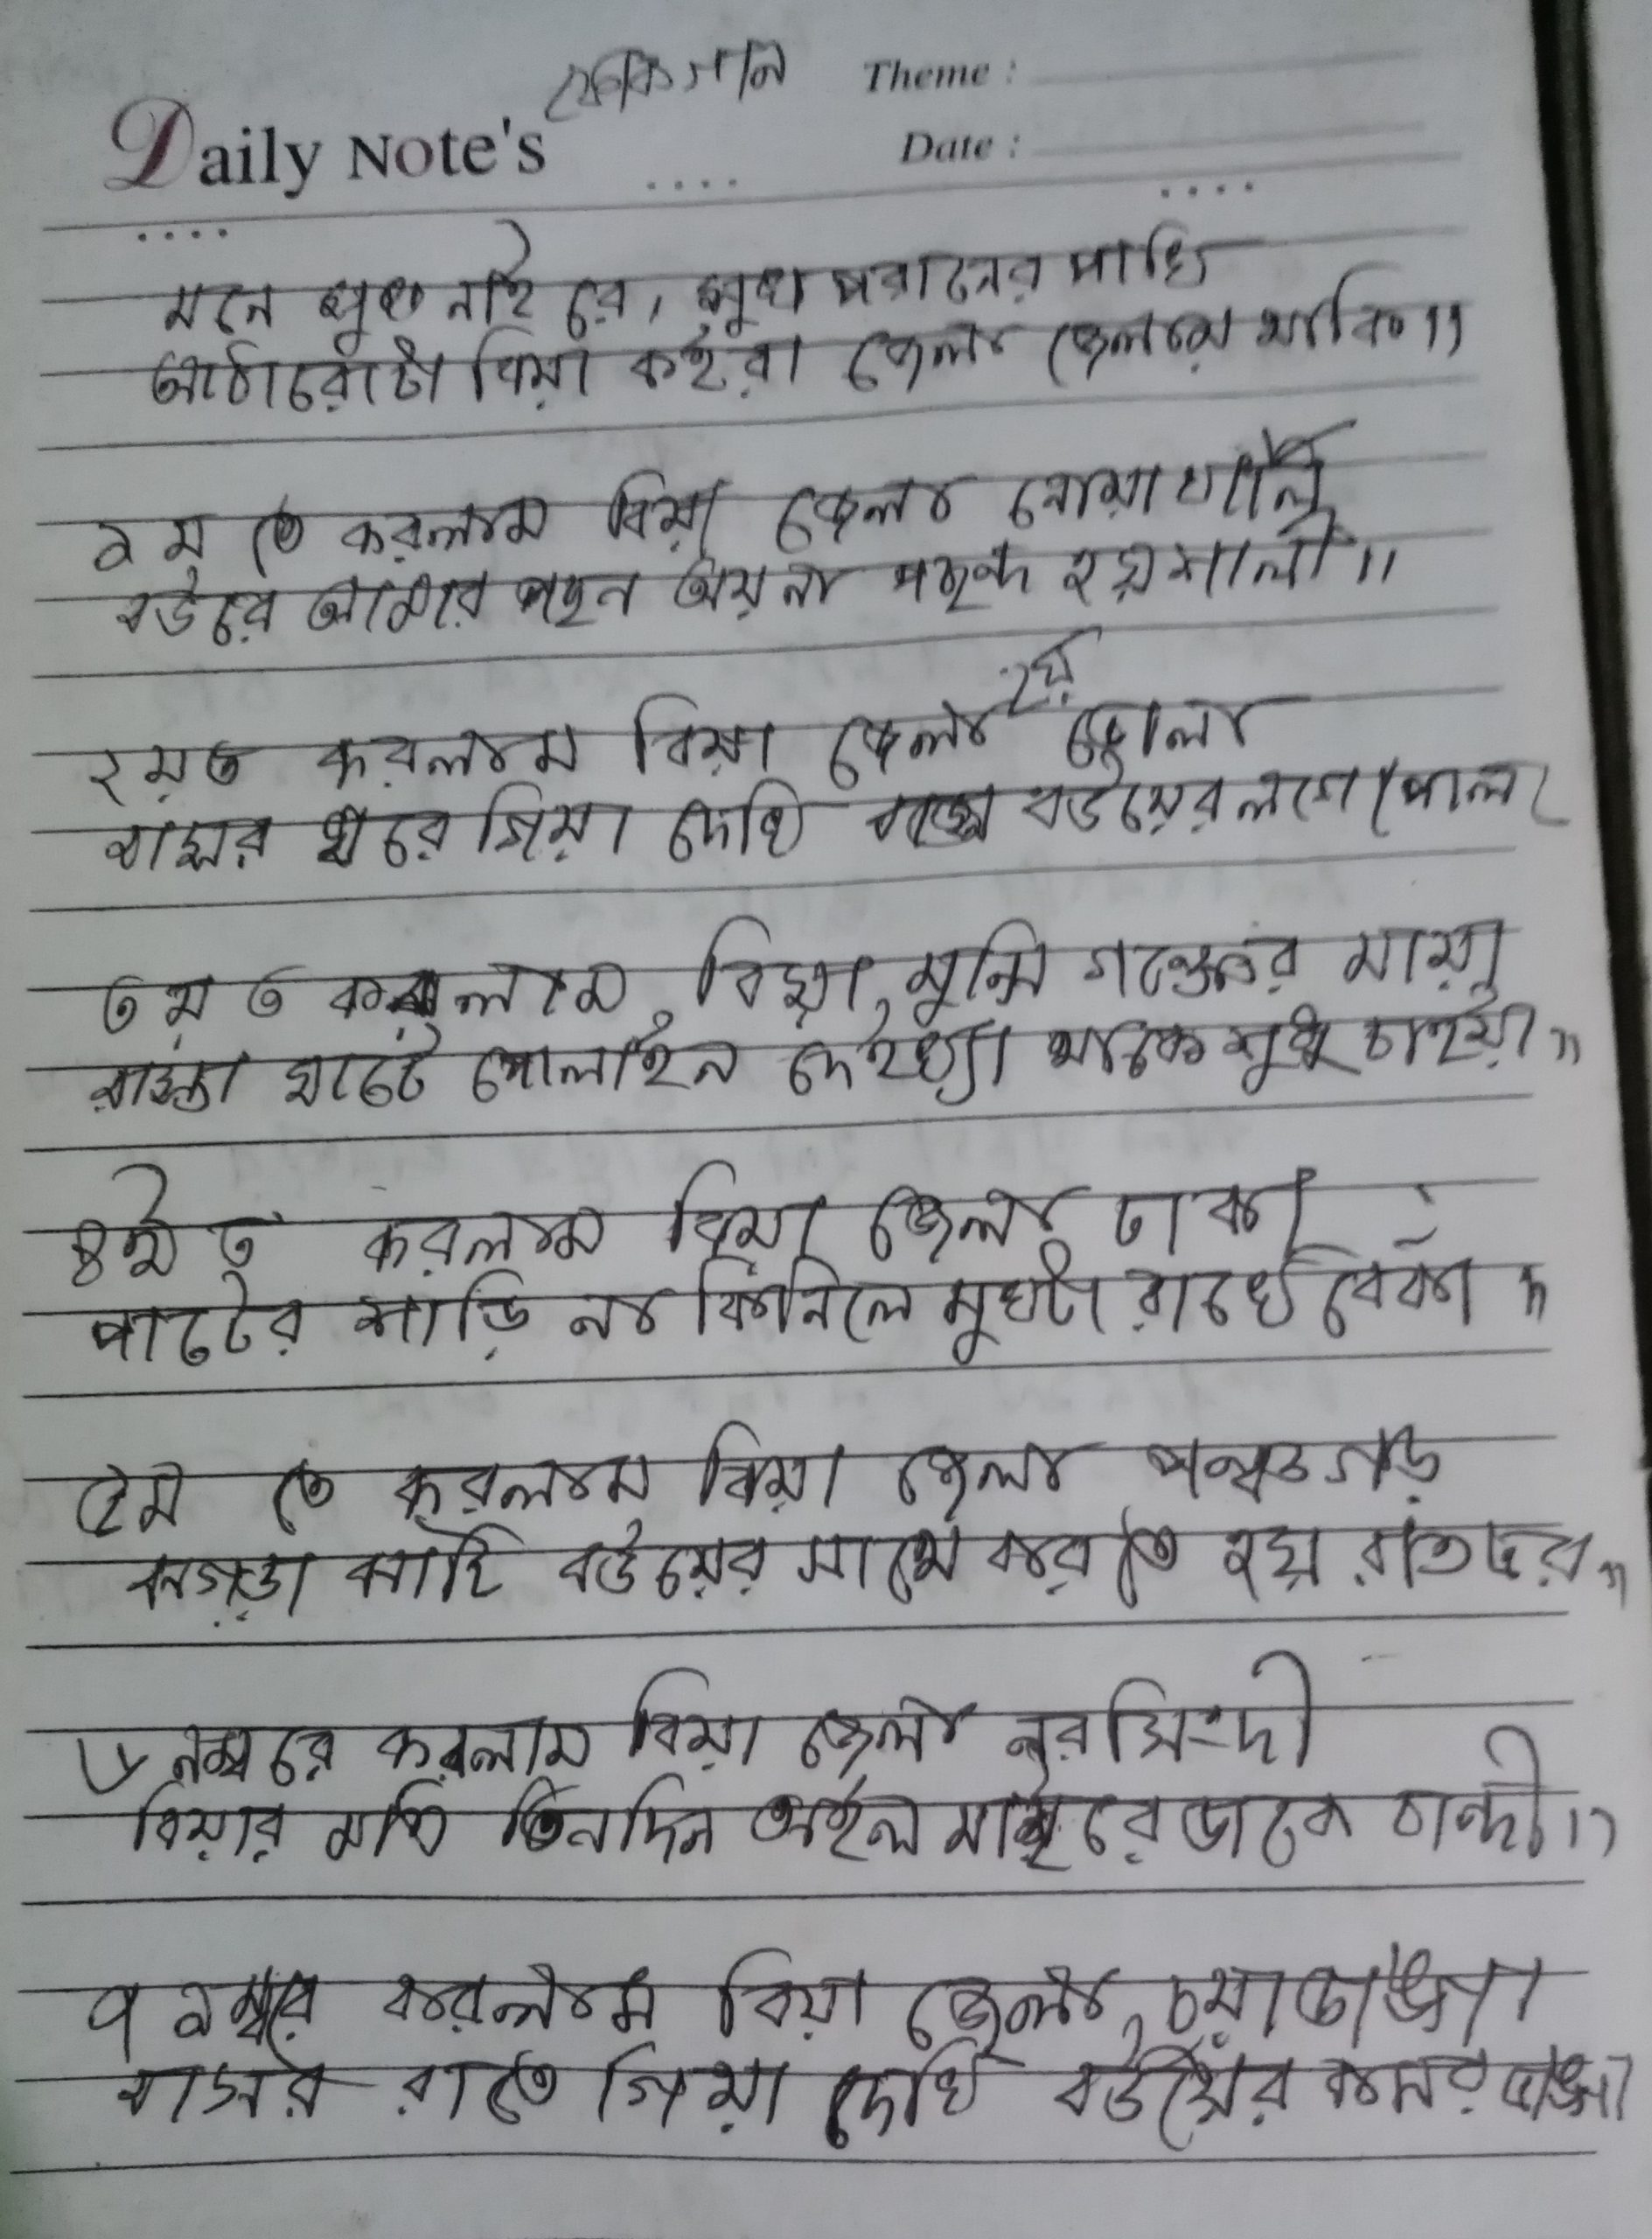 লোকগান
Theme :
Daily Note's
Date :
মনে সুখ নাই রে, সুখ পরানের পাখি
আঠারোটা বিয়া কইরা জেলা জেলায় থাকি।।
১ম তে করলাম বিয়া জেলা নোয়াখালী
বউরে আমার পছন অয় না পছন্দ হয় শালী।।
২য় ত করলাম বিয়া জেলা হয় ভোলা
বাসর ঘরে গিয়া দেখি বউয়ের লগে পোলা
৩ য় ত করলাম বিয়া, মুন্সি গঞ্জের মাইয়া
রাস্তা ঘাটে পোলাইন দেইখ্যা থাকে শুধু চাইয়া।।
৪র্থে ত করলাম বিয়া জেলা ঢাকা
পাটের শাড়ি না কিনিলে মুখটা রাখে বেকা।।
৫ম তে করলাম বিয়া জেলা পঞ্চগড়
ঝগড়া ঝাটি বউয়ের সাথে করতে হয় রাতভর।।
৬ নম্বরে করলাম বিয়া জেলা নরসিংদী
বিয়ার মাত্র তিনদিন অইল মাইরে ডাকে চান্দী।।
৭ নম্বর করলাম বিয়া জেলা, চুয়াডাঙ্গা
বাসর রাতে গিয়া দেখি বউয়ের কমর ভাঙ্গা